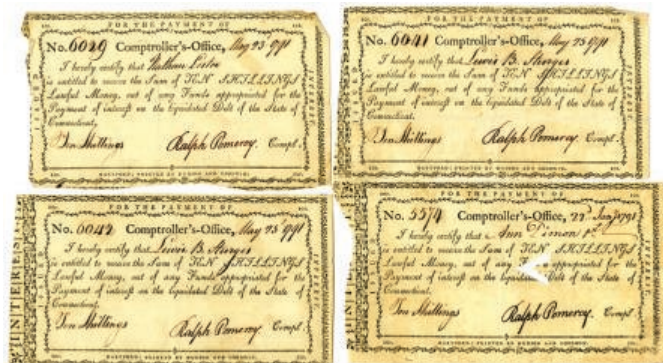 FOR THE PAYMENT OF
No. 6029 Comptroller's-Office, May 23d 1791
I hereby certify that Nathan
is entitled to receive the Sum of TEN SHILLINGS
Lawful Money, out of any Funds appropriated for the
Payment of interest on the liquidated Debt of the State of
Connecticut.
Ten Shillings Ralph Pomeroy. Compt.
HARTFORD: PRINTED BY HUDSON AND GOODWIN.
FOR THE PAYMENT OF
No. 6041 Comptroller's-Office, May 23 1791
I hereby certify that Lewis B. Sturges
is entitled to receive the Sum of TEN SHILLINGS
Lawful Money, out of any Funds appropriated for the
Payment of interest on the liquidated Debt of the State of
Connecticut.
Ten Shillings Ralph Pomeroy. Compt.
HARTFORD: PRINTED BY HUDSON AND GOODWIN.
FOR THE PAYMENT OF
INTEREST
No. 6042 Comptroller's-Office, May 23d 1791
I hereby certify that Lewis B. Sturges
is entitled to receive the Sum of TEN SHILLINGS
Lawful Money, out of any Funds appropriated for the
Payment of interest on the liquidated Debt of the State of
Connecticut.
Ten Shillings Ralph Pomeroy. Compt.
HARTFORD: PRINTED BY HUDSON AND GOODWIN.
FOR THE PAYMENT OF
No. 5574 Comptroller's-Office, 22d Jany 1791
I hereby certify that Ann Dimon
is entitled to receive the Sum of TEN SHILLINGS
Lawful Money, out of any appropriated for the
Payment of interest on the liquidated Debt of the State of
Connecticut.
Ten Shillings Ralph Pomeroy. Compt.
HARTFORD: PRINTED BY HUDSON AND GOODWIN.